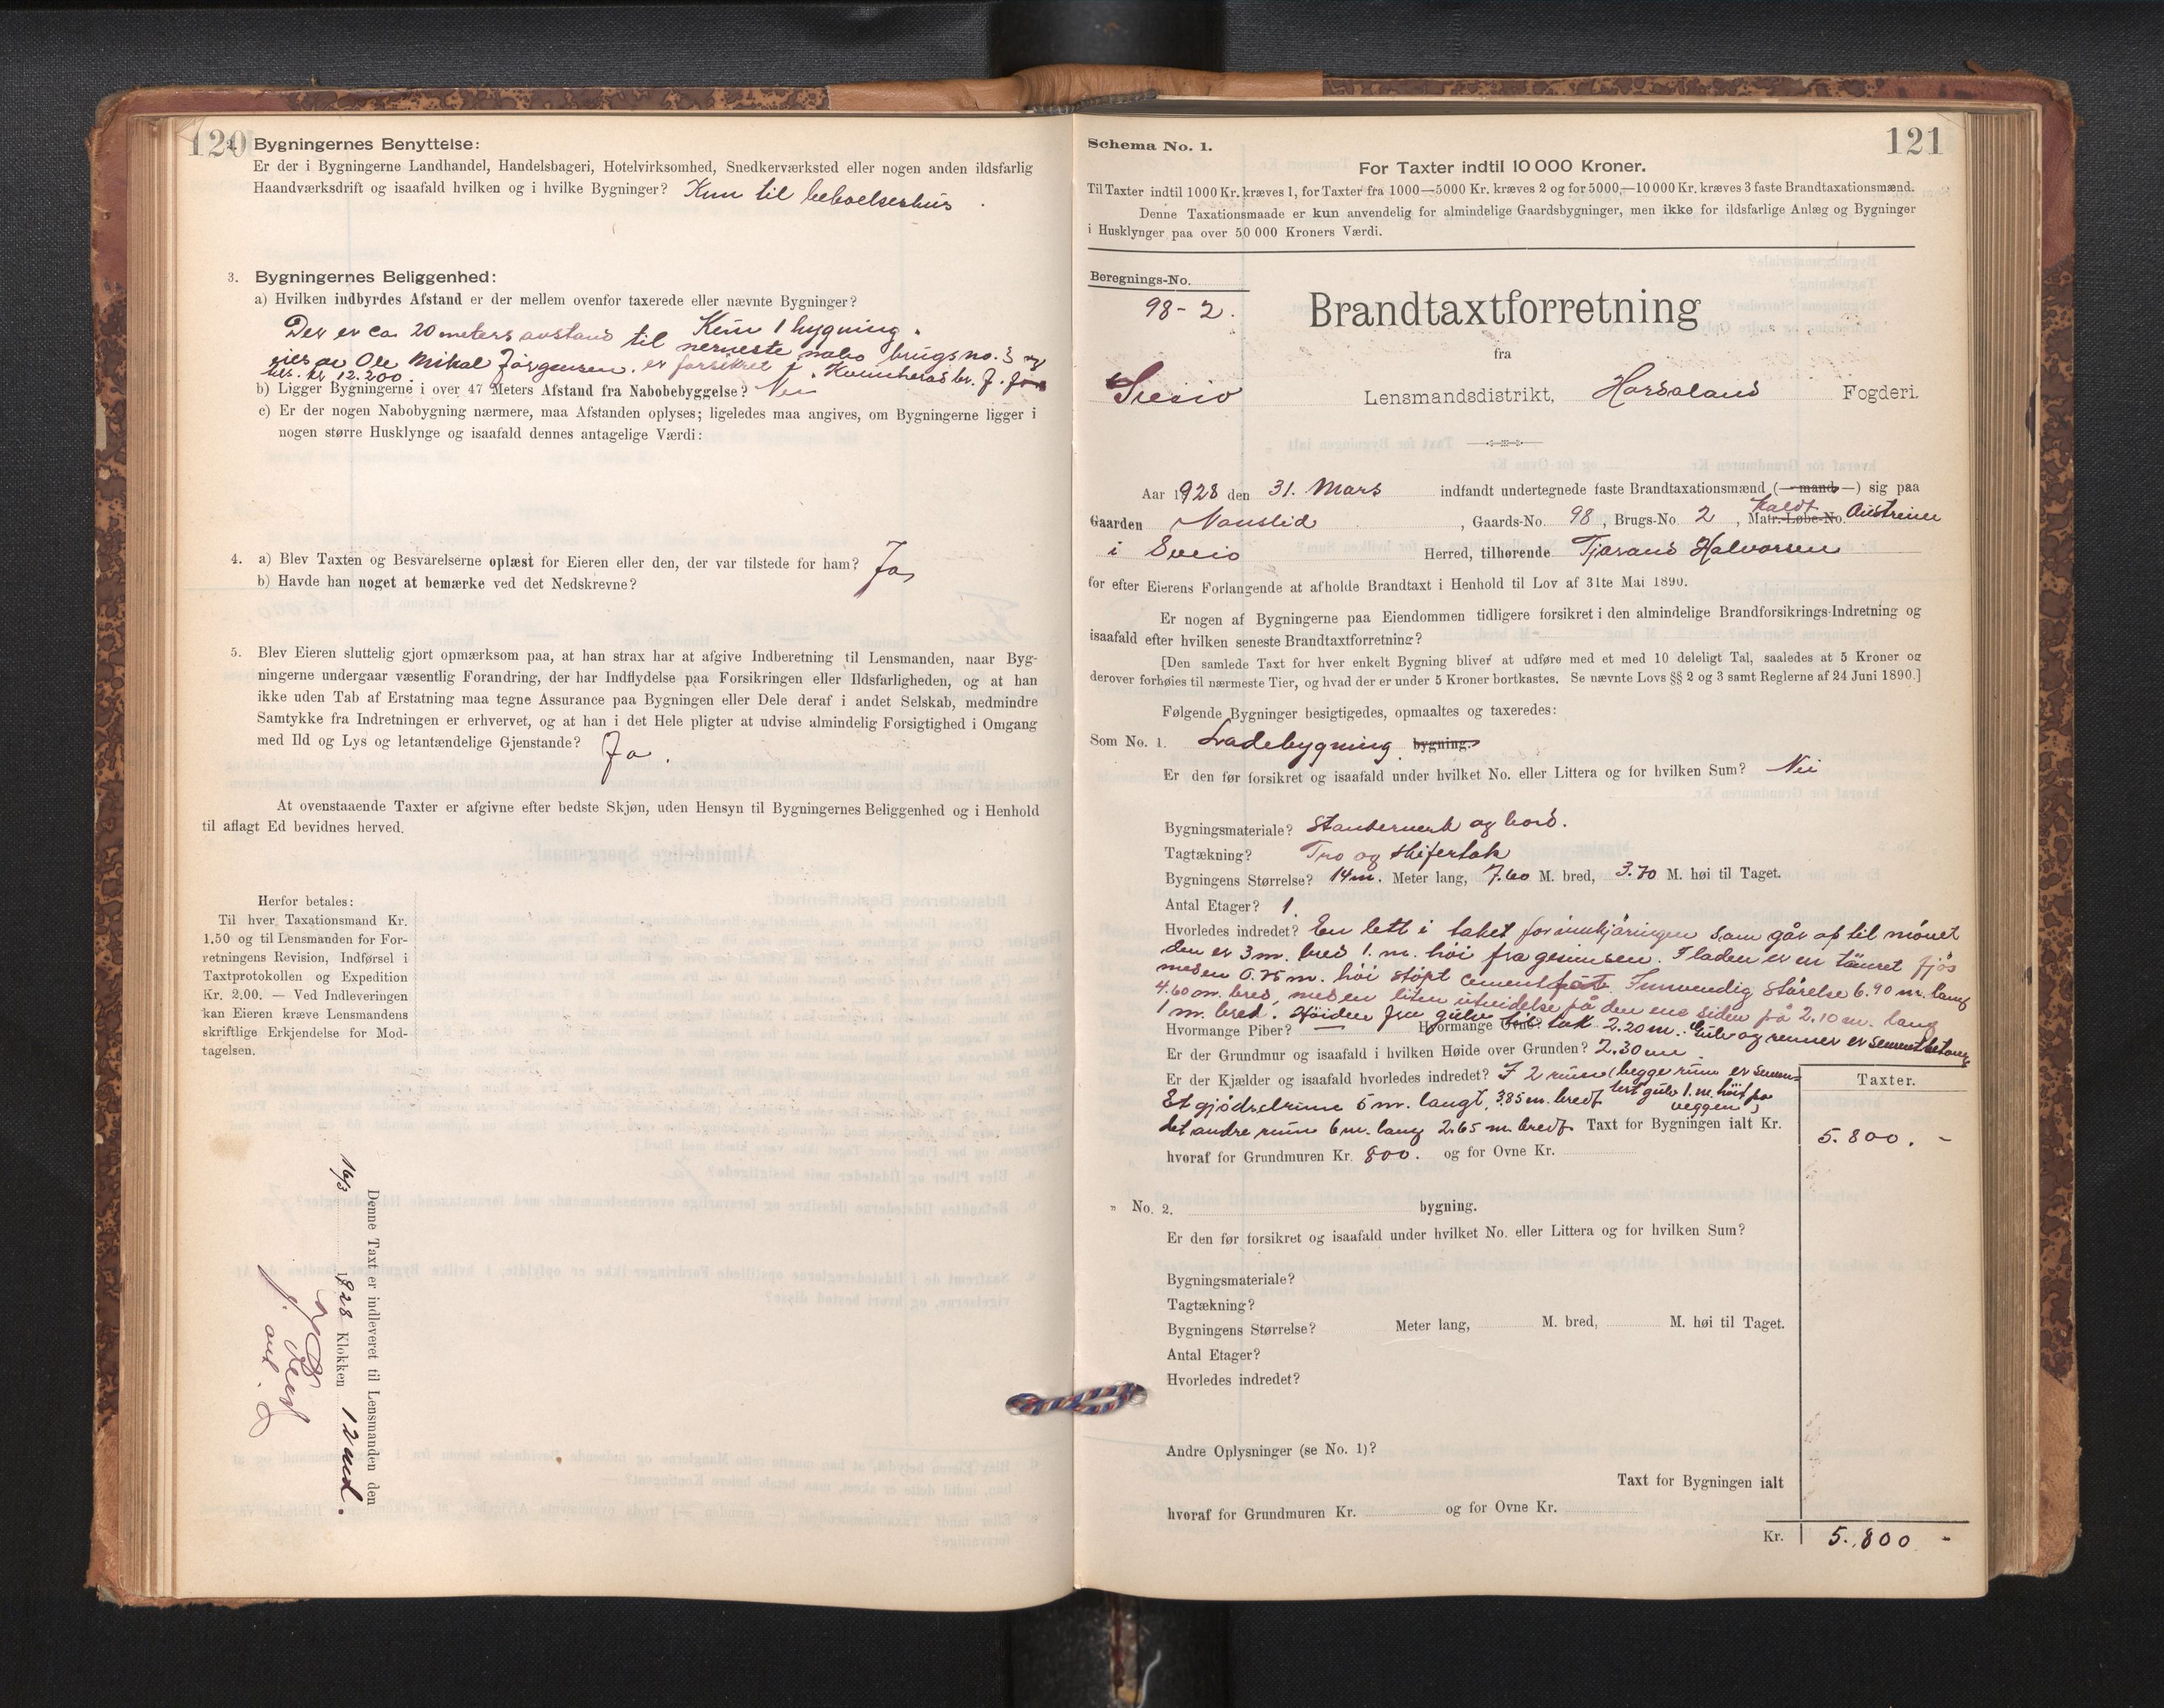 120
2. Bygningernes Benyttelse:
Er der i Bygningerne Landhandel, Handelsbageri, Hotelvirksomhed, Snedkerværksted eller nogen anden ildsfarlig
Haandværksdrift og isaafald hvilken og i hvilke Bygninger? Kun til beboelseshus.
3. Bygningernes Beliggenhed:
a) Hvilken indbyrdes Afstand er der mellem ovenfor taxerede eller nævnte Bygninger?
Kun 1 bygning.
Der er ca 20 meters avstand til nermeste nabo brugsno. 3 og
eies av Ole Mikal Jørgensen. er forsikret i Kvinherad br.
kr 12.200.
b) Ligger Bygningerne i over 47 Meters Afstand fra Nabobebyggelse? Nei
c) Er der nogen Nabobygning nærmere, maa Afstanden oplyses; ligeledes maa angives, om Bygningerne ligger i
nogen større Husklynge og isaafald dennes antagelige Værdi:
4. a) Blev Taxten og Besvarelserne oplæst for Eieren eller den, der var tilstede for ham? Ja
b) Havde han noget at bemærke ved det Nedskrevne?
5. Blev Eieren sluttelig gjort opmærksom paa, at han strax har at afgive Indberetning til Lensmanden, naar Byg-
ningerne undergaar væsentlig Forandring, der har Indflydelse paa Forsikringen eller Ildsfarligheden, og at han
ikke uden Tab af Erstatning maa tegne Assurance paa Bygningen eller Dele deraf i andet Selskab, medmindre
Samtykke fra Indretningen er erhvervet, og at han i det Hele pligter at udvise almindelig Forsigtighed i Omgang
med Ild og Lys og letantændelige Gjenstande? Ja.
At ovenstaaende Taxter er afgivne efter bedste Skjøn, uden Hensyn til Bygningernes Beliggenhed og i Henhold
til aflagt Ed bevidnes herved.
Herfor betales:
Til hver Taxationsmand Kr.
1.50 og til Lensmanden for For-
retningens Revision, Indførsel i
Taxtprotokollen og Expedition
Kr. 2.00. — Ved Indleveringen
kan Eieren kræve Lensmandens
skriftlige Erkjendelse for Mod-
tagelsen.
Denne Taxt er indleveret til Lensmanden den
16/3 1928 Klokken 12 md.
121
Schema No. 1.
For Taxter indtil 10 000 Kroner.
Til Taxter indtil 1000 Kr. kræves 1, for Taxter fra 1000—5000 Kr. kræves 2 og for 5000,—10 000 Kr. kræves 3 faste Brandtaxationsmænd.
Denne Taxationsmaade er kun anvendelig for almindelige Gaardsbygninger, men ikke for ildsfarlige Anlæg og Bygninger
i Husklynger paa over 50 000 Kroners Værdi.
Beregnings-No.
98 - 2.
Brandtaxtforretning
fra
Sveio Lensmandsdistrikt, Hordaland Fogderi.
Aar 1928 den 31. Mars indfandt undertegnede faste Brandtaxationsmænd (— mand —) sig paa
Gaarden Nonslid, Gaards-No. 98, Brugs-No. 2, Matr.-Løbe-No. Kaldt Austreim
i Sveio Herred, tilhørende Tjerand Halvorsen
for efter Eierens Forlangende at afholde Brandtaxt i Henhold til Lov af 31te Mai 1890.
Er nogen af Bygningerne paa Eiendommen tidligere forsikret i den almindelige Brandforsikrings-Indretning og
isaafald efter hvilken seneste Brandtaxtforretning?
[Den samlede Taxt for hver enkelt Bygning bliver at udføre med et med 10 deleligt Tal, saaledes at 5 Kroner og
derover forhøies til nærmeste Tier, og hvad der er under 5 Kroner bortkastes. Se nævnte Lovs §§ 2 og 3 samt Reglerne af 24 Juni 1890.]
Følgende Bygninger besigtigedes, opmaaltes og taxeredes:
Som No. 1. Ladebygning bygning.
Er den før forsikret og isaafald under hvilket No. eller Littera og for hvilken Sum? Nei
Bygningsmateriale? Standerverk og bord.
Tagtækning? Tro og skifertak
Bygningens Størrelse? 14 m. Meter lang, 7.60 M. bred, 3.70 M. høi til Taget.
Antal Etager? 1.
Hvorledes indredet? En lett i taket for innkjøringen som går op til mønet
den er 3 m. bred 1. m. høi fra gesimsen. I laden er en tømret fjøs
med en 0.75 m. høi støpt cement Innvendig størelse 6.90 m. lang
4.60 m. bred, med en liten utvidelse på den ene siden på 2.10 m. lang
1 m. bred. Høiden fra gulv til tak 2.20 m. Gulv og renner er
Hvormange Piber? — Hvormange Ovne?
Er der Grundmur og isaafald i hvilken Høide over Grunden? 2.30 m
Er der Kjælder og isaafald hvorledes indredet? I 2 rum (begge rum er semen-
tert gulv 1. m. høit på veggen)
Et gjødselrum 5 m. langt, 3.85 m. bredt
det andre rum 6 m. lang 2.65 m. bredt Taxt for Bygningen ialt Kr.
Taxter.
5.800. -
hvoraf for Grundmuren Kr. 800. og for Ovne Kr.
„ No. 2. bygning.
Er den før forsikret og isaafald under hvilket No. eller Littera og for hvilken Sum?
Bygningsmateriale?
Tagtækning?
Bygningens Størrelse? Meter lang, M. bred, M. høi til Taget.
Antal Etager?
Hvorledes indredet?
Andre Oplysninger (se No. 1)?
Taxt for Bygningen ialt
hvoraf for Grundmuren Kr. og for Ovne Kr.
Kr. 5.800 -